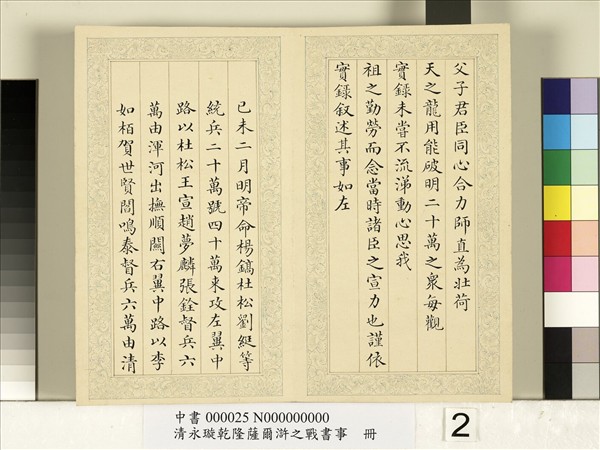 父子君臣同心合力師直為壯荷
天之龍用能破明二十萬之衆每觀
實錄未嘗不流涕動心思我
祖之勤勞而念當時諸臣之宣力也謹依
實錄叙述其事如左
已未二月明帝命楊鎬杜松劉綎等
統兵二十萬號四十萬來攻左翼中
路以杜松王宣趙夢麟張銓督兵六
萬由渾河出撫順關右翼中路以李
如栢賀世賢閻鳴泰督兵六萬由清
中書 000025 N000000000
清永璇乾隆薩爾滸之戰書事 冊
2